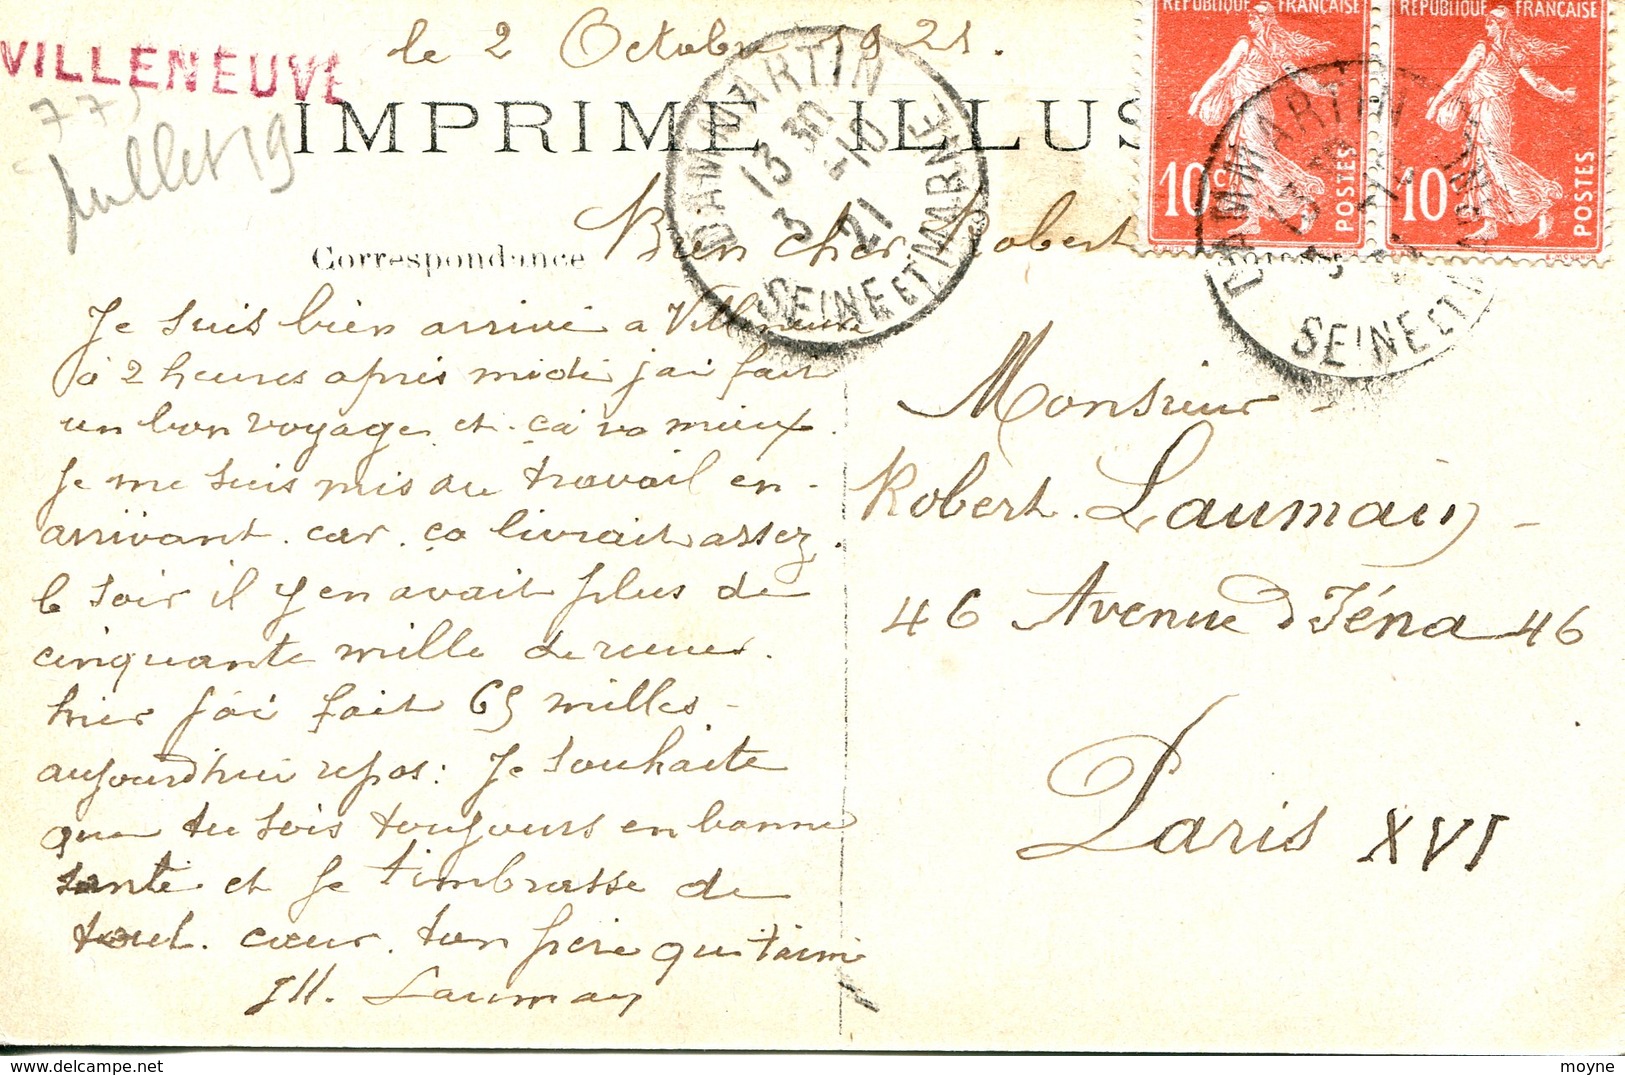 VILLENEUVE
77
Juillet 19
le 2 Octobre 1921.
IMPRIMÉ ILLUS
REPUBLIQUE FRANÇAISE
10c
POSTES
REPUBLIQUE FRANÇAISE
10c
POSTES
DAMMARTIN
13 30
3 -10
21
SEINE ET MARNE
DAMMARTIN
SEINE ET MARNE
Correspondance
Bien cher Robert
Je suis bien arrivé a Villeneuve
à 2 heures après midi j'ai fait
un bon voyage et ça va mieux.
Je me suis mis au travail en
arrivant. car. ça livrait assez.
le soir il y en avait plus de
cinquante mille de
hier j'ai fait 65 milles
aujourd'hui repos: Je souhaite
que tu sois toujours en bonne
santé et je t'imbrasse de
tout. cœur. ton père qui t'aime
M. Laumay
Monsieur
Robert Laumay
46 Avenue d'Iéna 46
Paris XVI
moyne